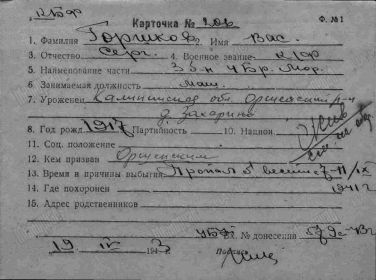 КБФ
Карточка № 206 Ф. №1
1. Фамилия Горшков 2. Имя Вас.
3. Отчество Серг. 4. Военное звание к/ф
5. Наименование части 3 б-н 4 Бр. Мор.
6. Занимаемая должность
7. Уроженец Калининская обл. Оршинский р-н
д. Захарино
8. Год рожд. 1917 Партийность 10. Национ.
11. Соц. положение
12. Кем призван Оршинским
13. Время и причины выбытия Пропал б/вести 7-11/IX
14. Где похоронен 1941 г
15. Адрес родственников
КБФ № донесения
19 IV 1943 Подпись